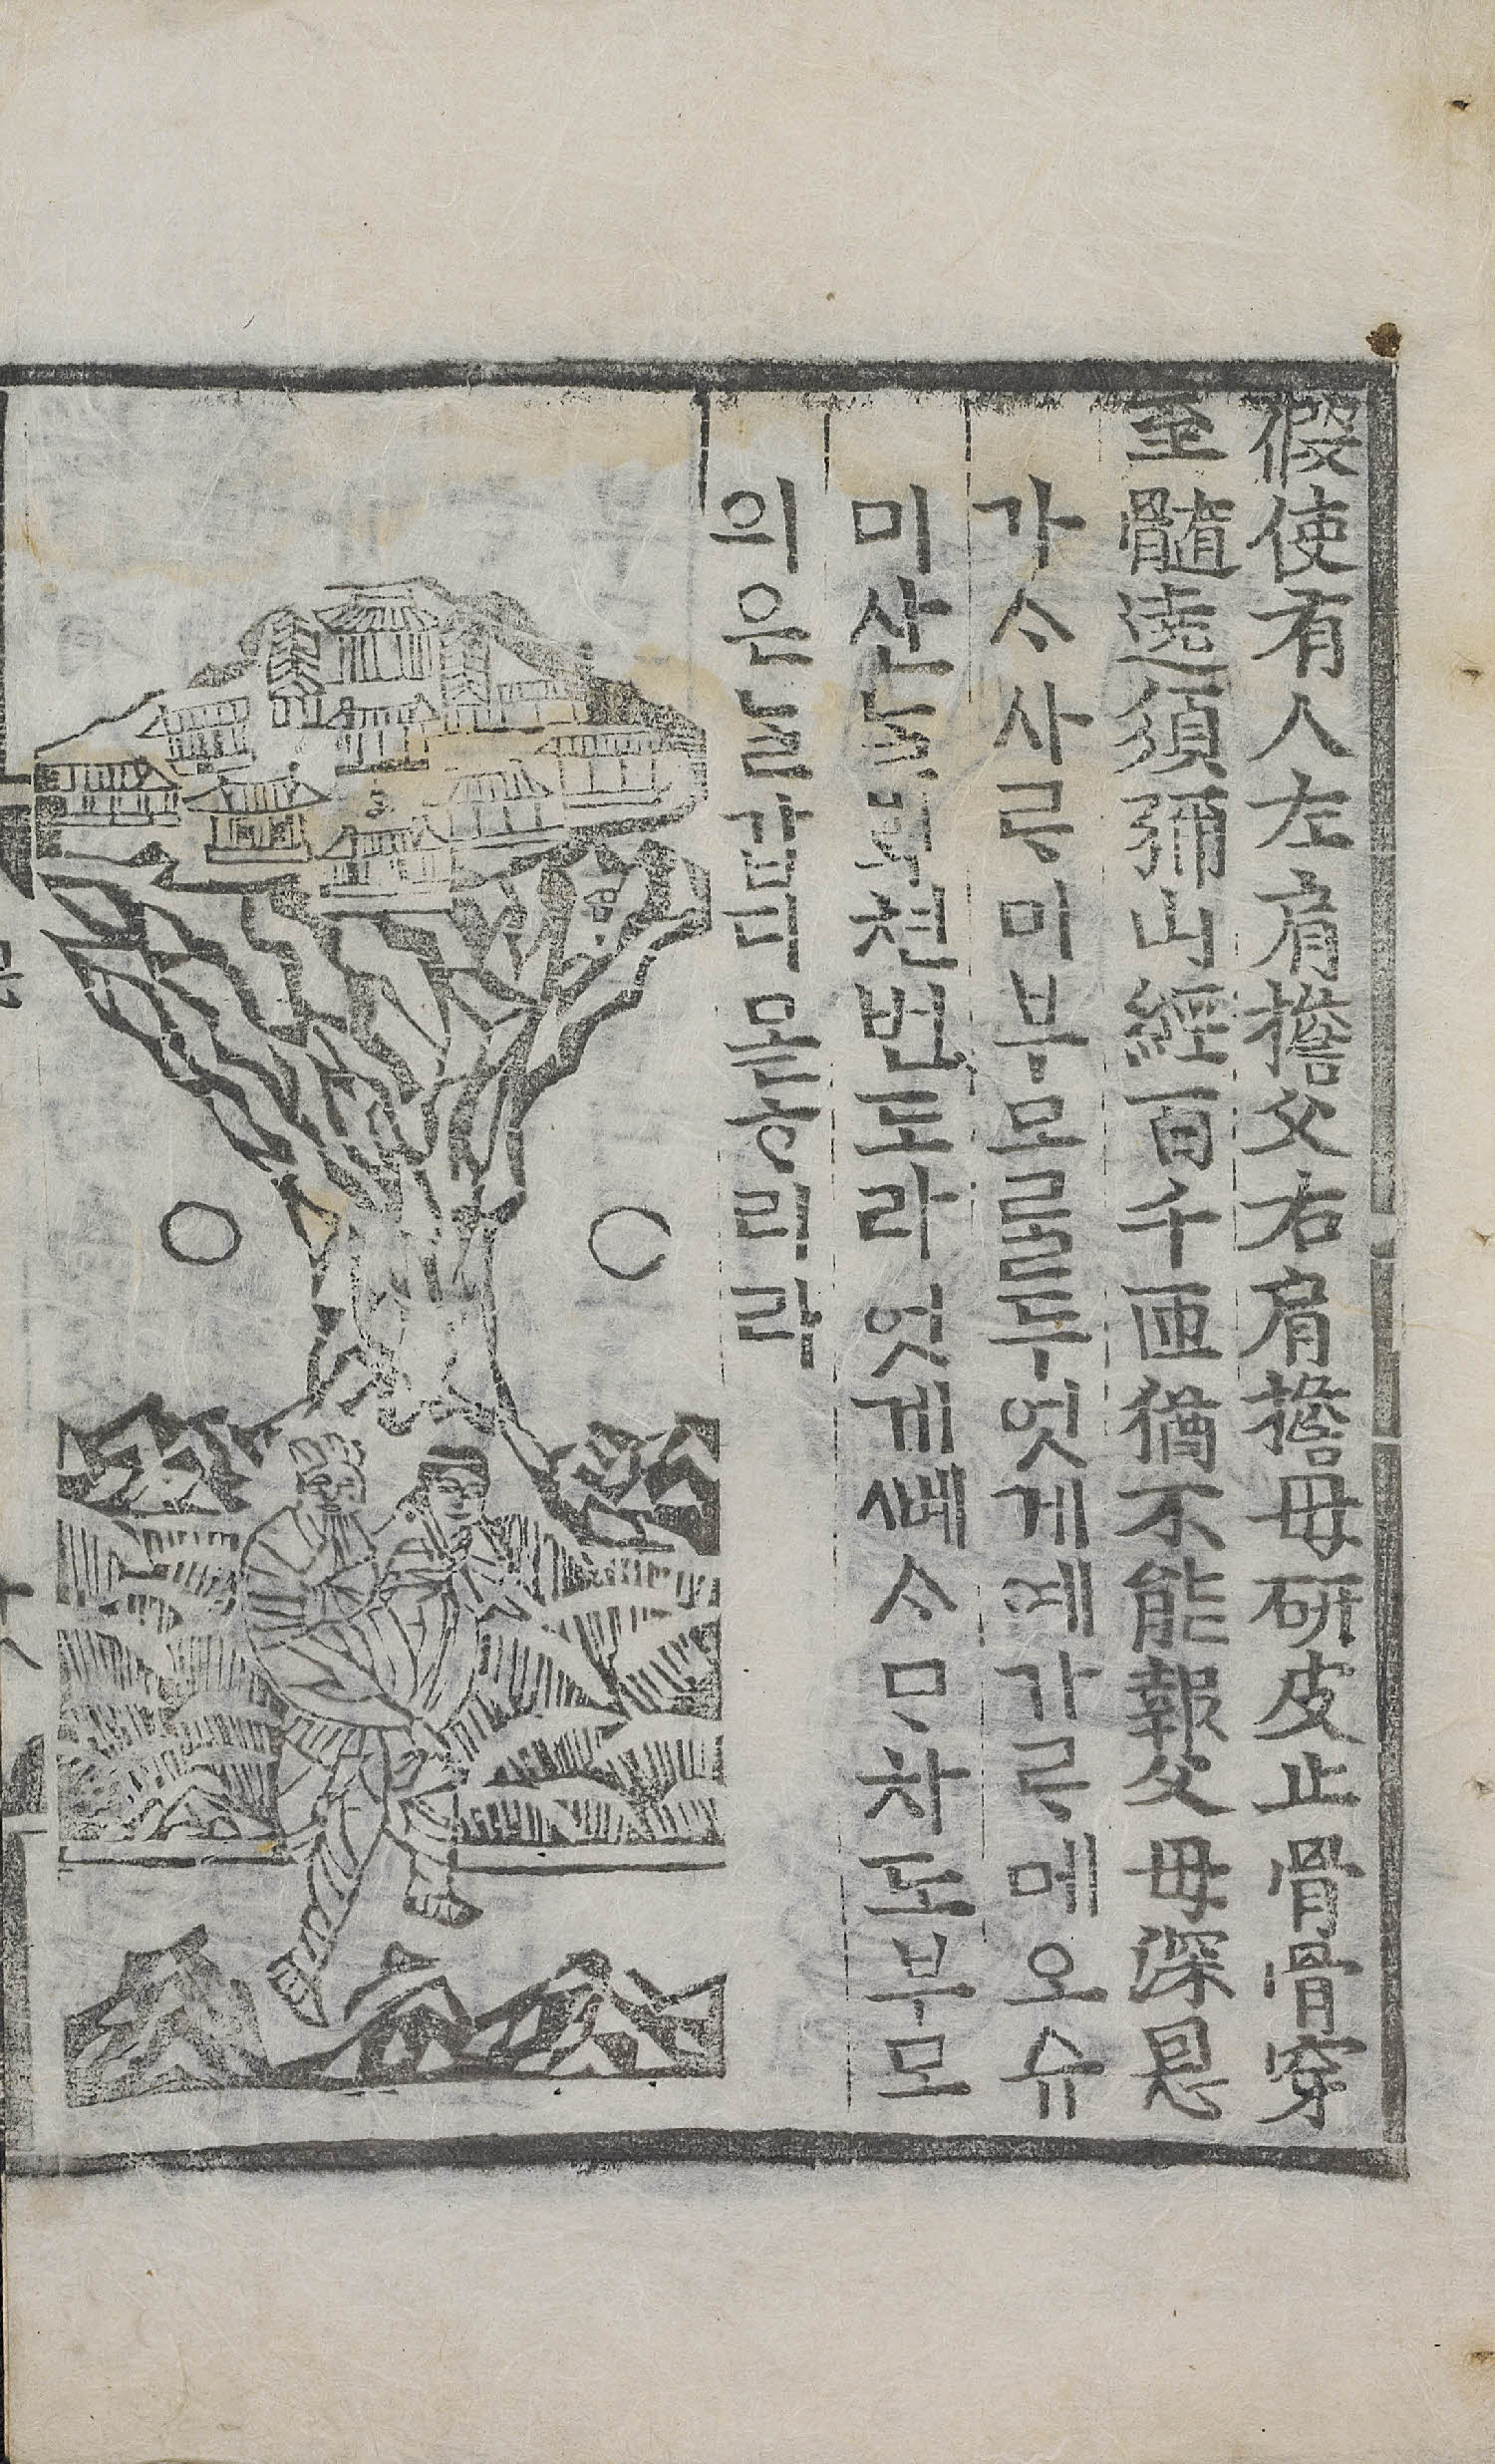 假使有人左肩擔父右肩擔母研皮止骨骨穿
至髓遶須彌山經百千匝猶不能報父母深恩
가ᄉᆞ사ᄅᆞ미부모ᄅᆞᆯ두엇게예가ᄅᆞ메오슈
미산ᄂᆞᆯᄇᆡᆨ쳔번도라엇게ᄲᅨᄉᆞᄆᆞ차도부모
의은늘갑디몯ᄒᆞ리라